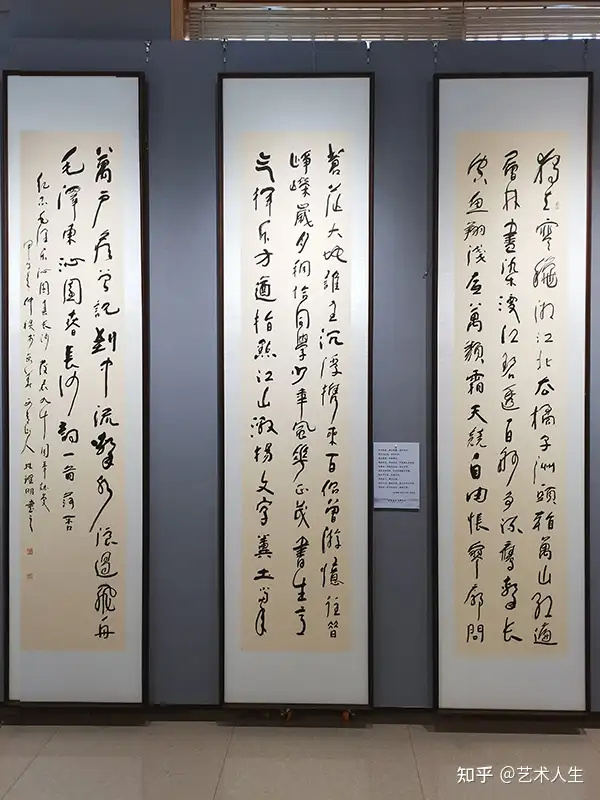 獨立寒秋湘江北去橘子洲頭看萬山紅遍
層林盡染漫江碧透百舸爭流鷹擊長
空魚翔淺底萬類霜天競自由悵寥廓問
蒼茫大地誰主沉浮攜來百侶曾游憶往昔
崢嶸歲月稠恰同學少年風華正茂書生意
气揮斥方遒指點江山激揚文字糞土當年
萬戶侯曾記到中流擊水浪遏飛舟
毛澤東沁園春長沙詞一首落否
紀念毛澤東沁園春長沙發表九十周年
知乎 @艺术人生